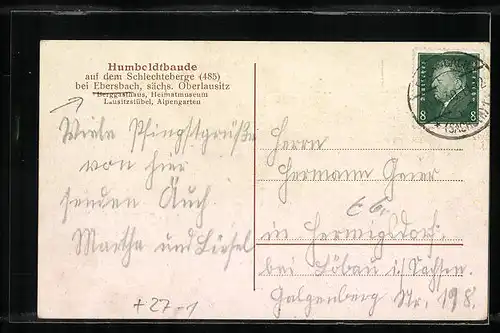 Humboldtbaude
auf dem Schlechteberge (485)
bei Ebersbach, sächs. Oberlausitz
Berggasthaus, Heimatmuseum
Lausitzstübel, Alpengarten
Viele Pfingstgrüße
von hier
senden Euch
Martha und Liesel
Herrn
Hermann Geier
in Herwigsdorf
bei Löbau i/Sachsen.
Galgenberg Nr. 198.
Deutsches Reich
8 8
(SACHSEN)
+27-1